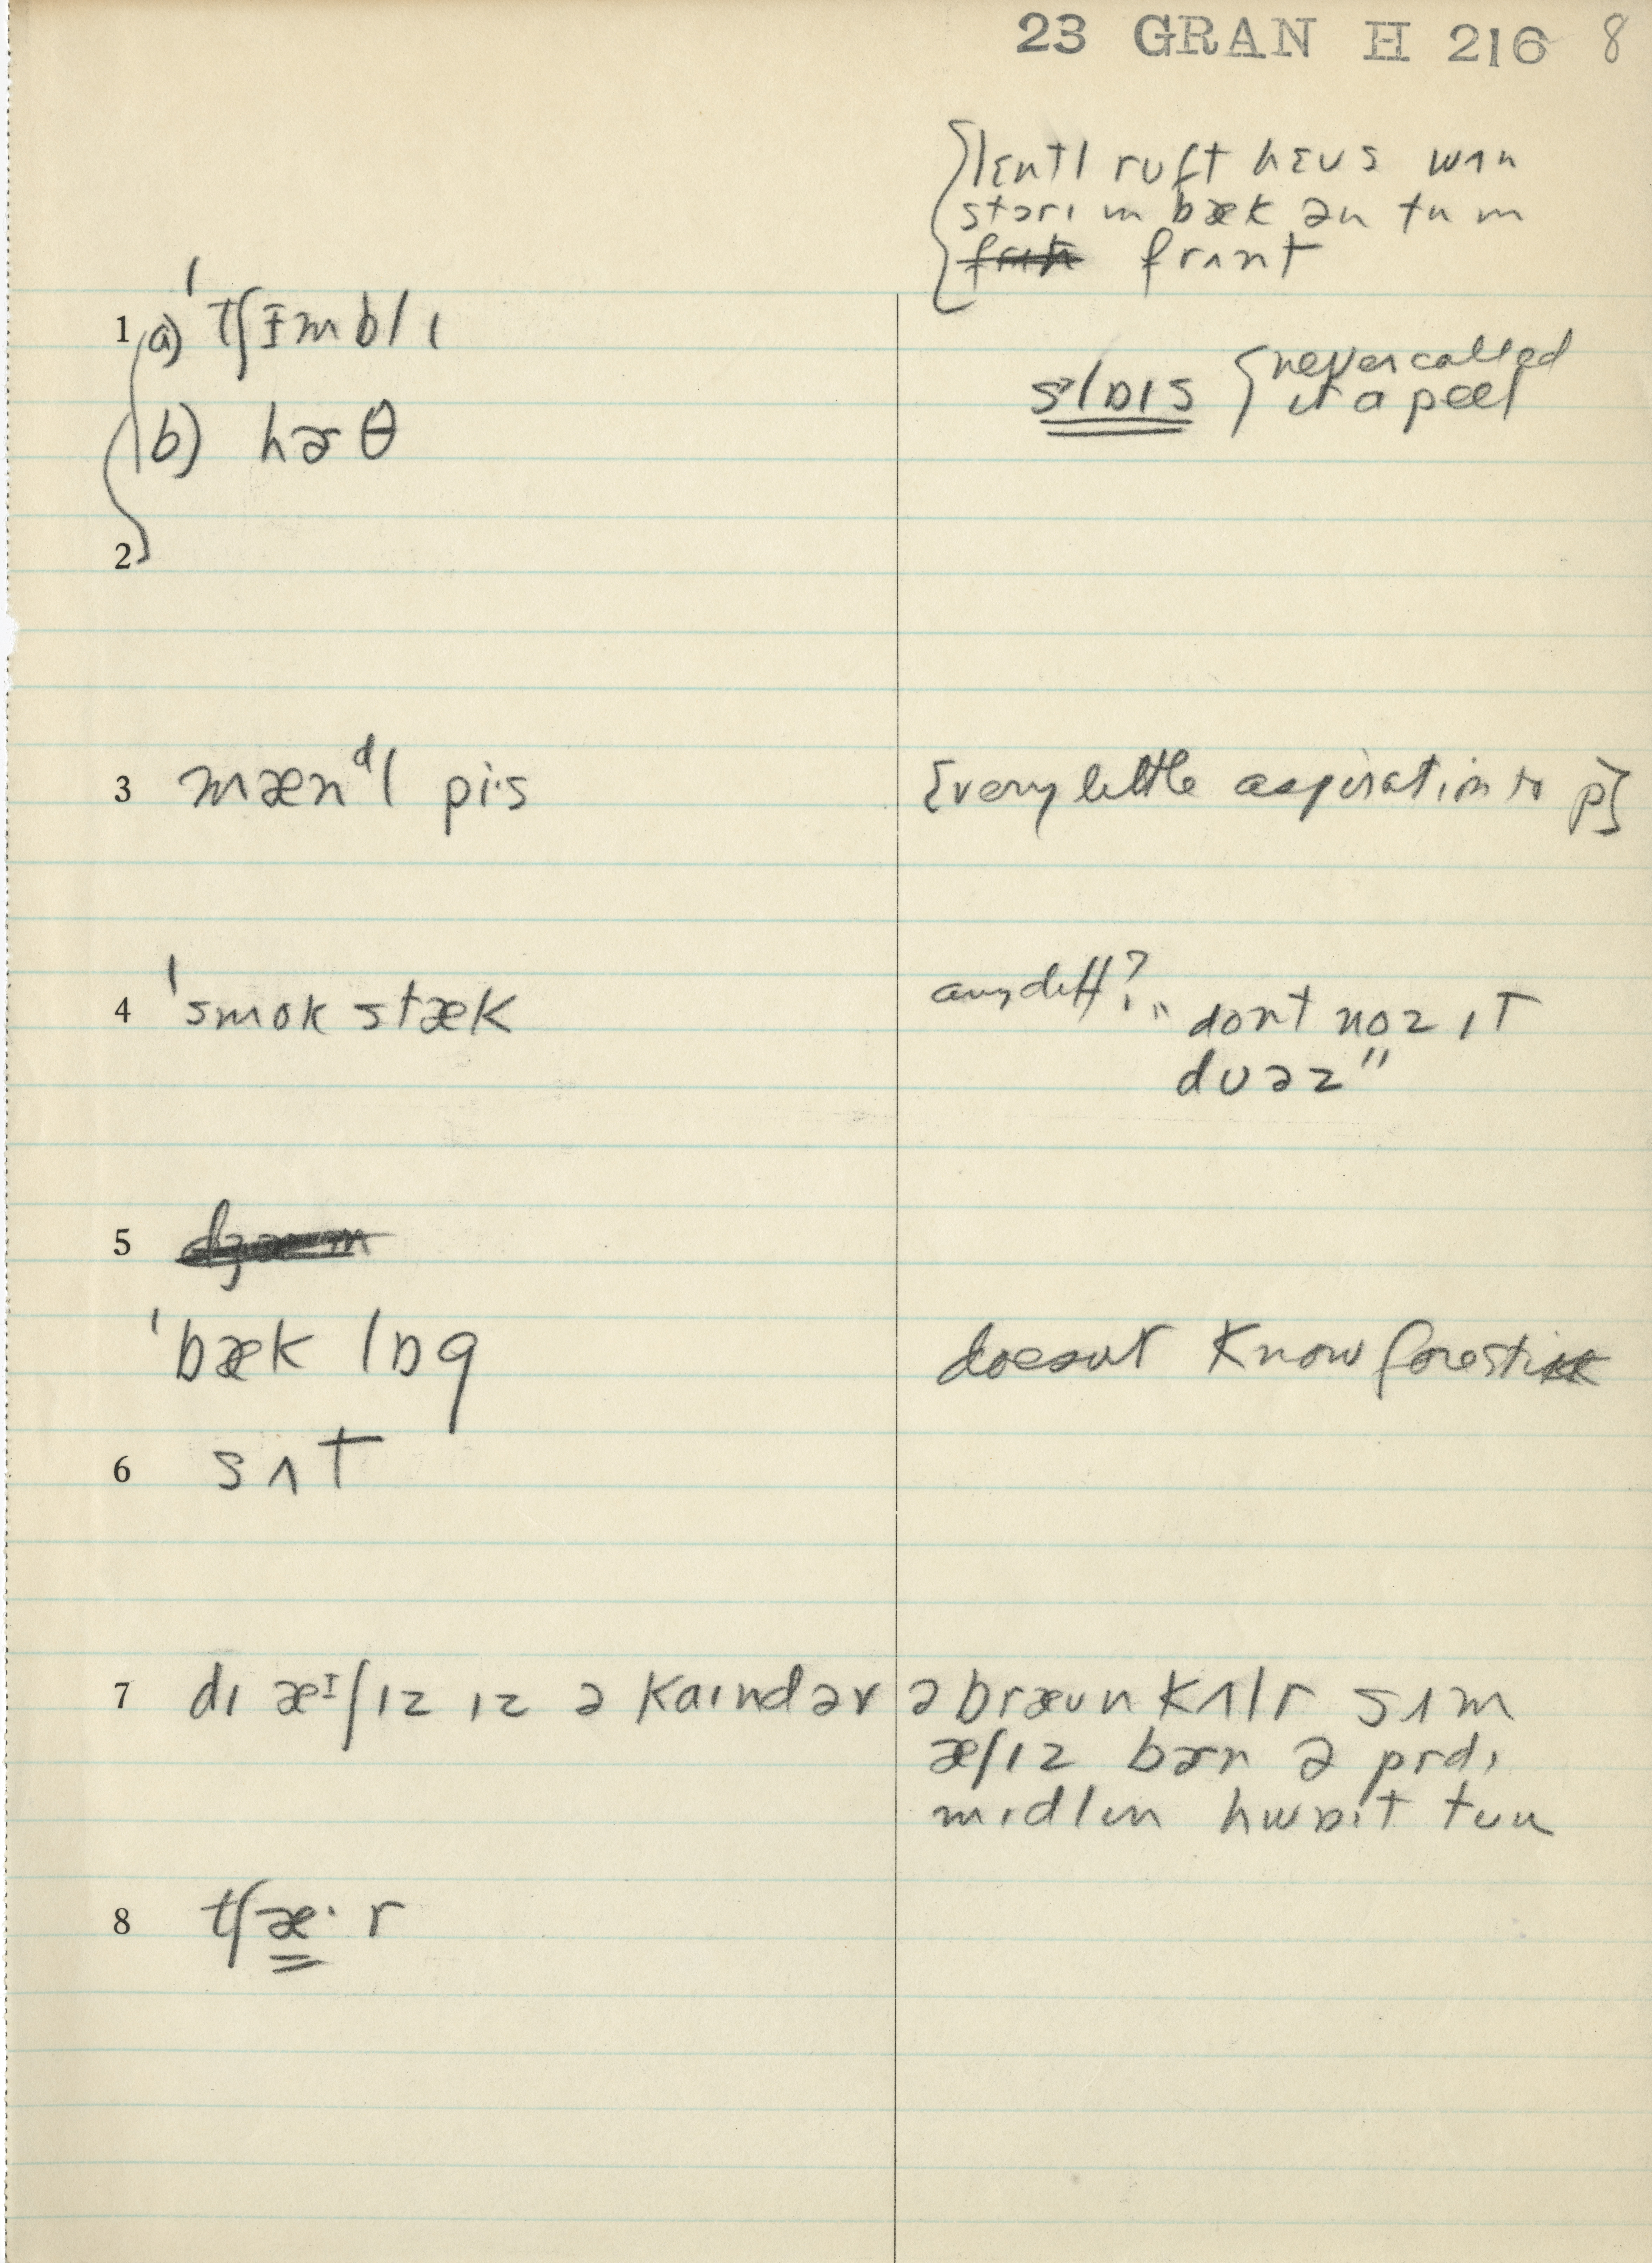 23 GRAN H 216 8
ruft hɛʊs wʌn
bæk ən
frʌnt
1 a) ˈtʃɪmblɪ
never called
it a peel
b) hɚθ
2
3 mænᵈl pi·s [very little aspiration to p]
4 ˈsmok stæk any diff? "dont noz ɪt
duəz"
5
ˈbæk lɒg doesnt know forestick
6 sʌt
7 dɪ æᶦʃɪz ɪz ə kaɪndər ə bræʊn kʌlr sʌm
æʃɪz bɚn ə prdɪ
mɪdlɪn hwɒɪt
8 tʃæ· r